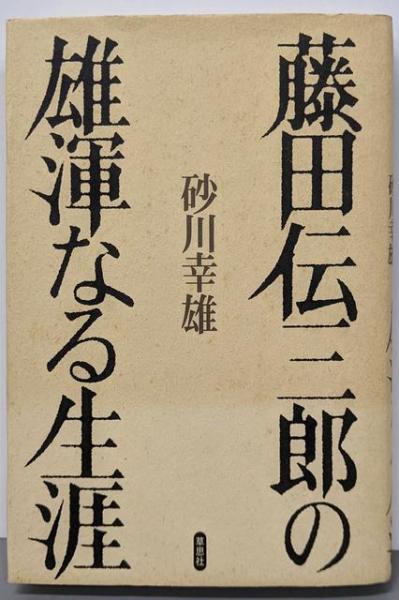 藤田伝三郎の
雄渾なる生涯
砂川幸雄
草思社